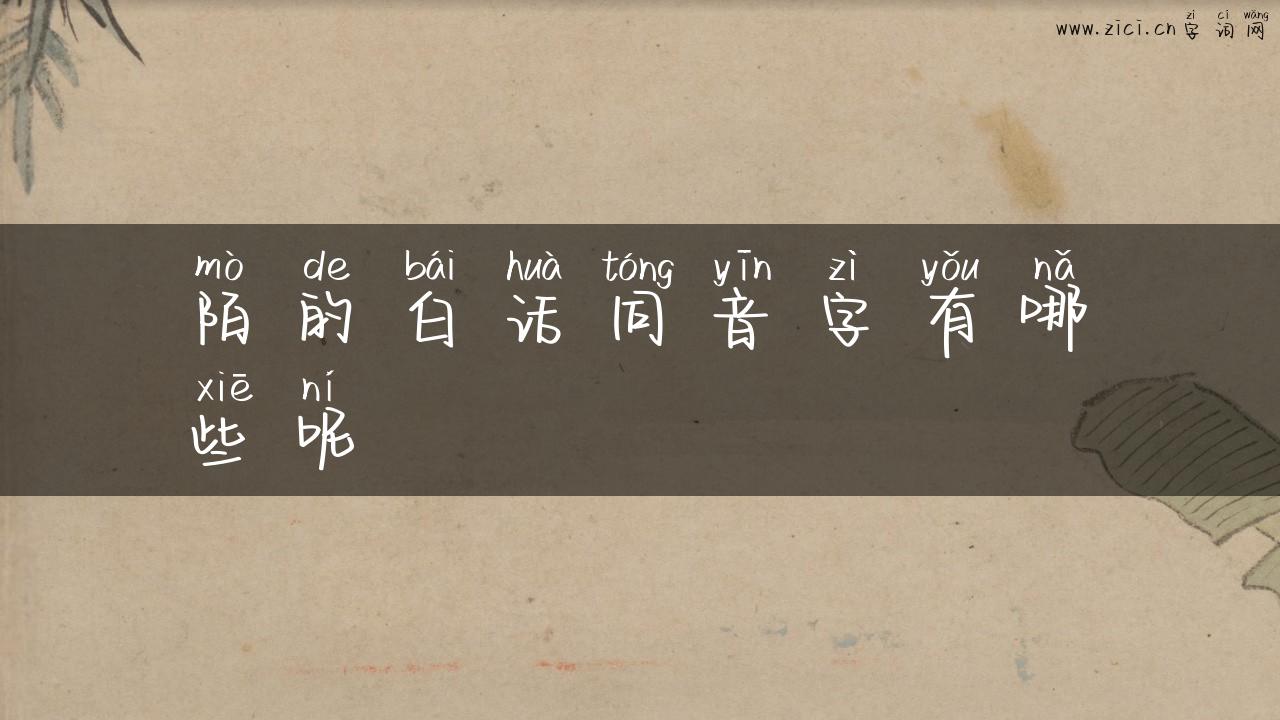 zì cí wǎng
www.zici.cn 字词网
mò de bái huà tóng yīn zì yǒu nǎ
陌的白话同音字有哪
xiē ní
些呢